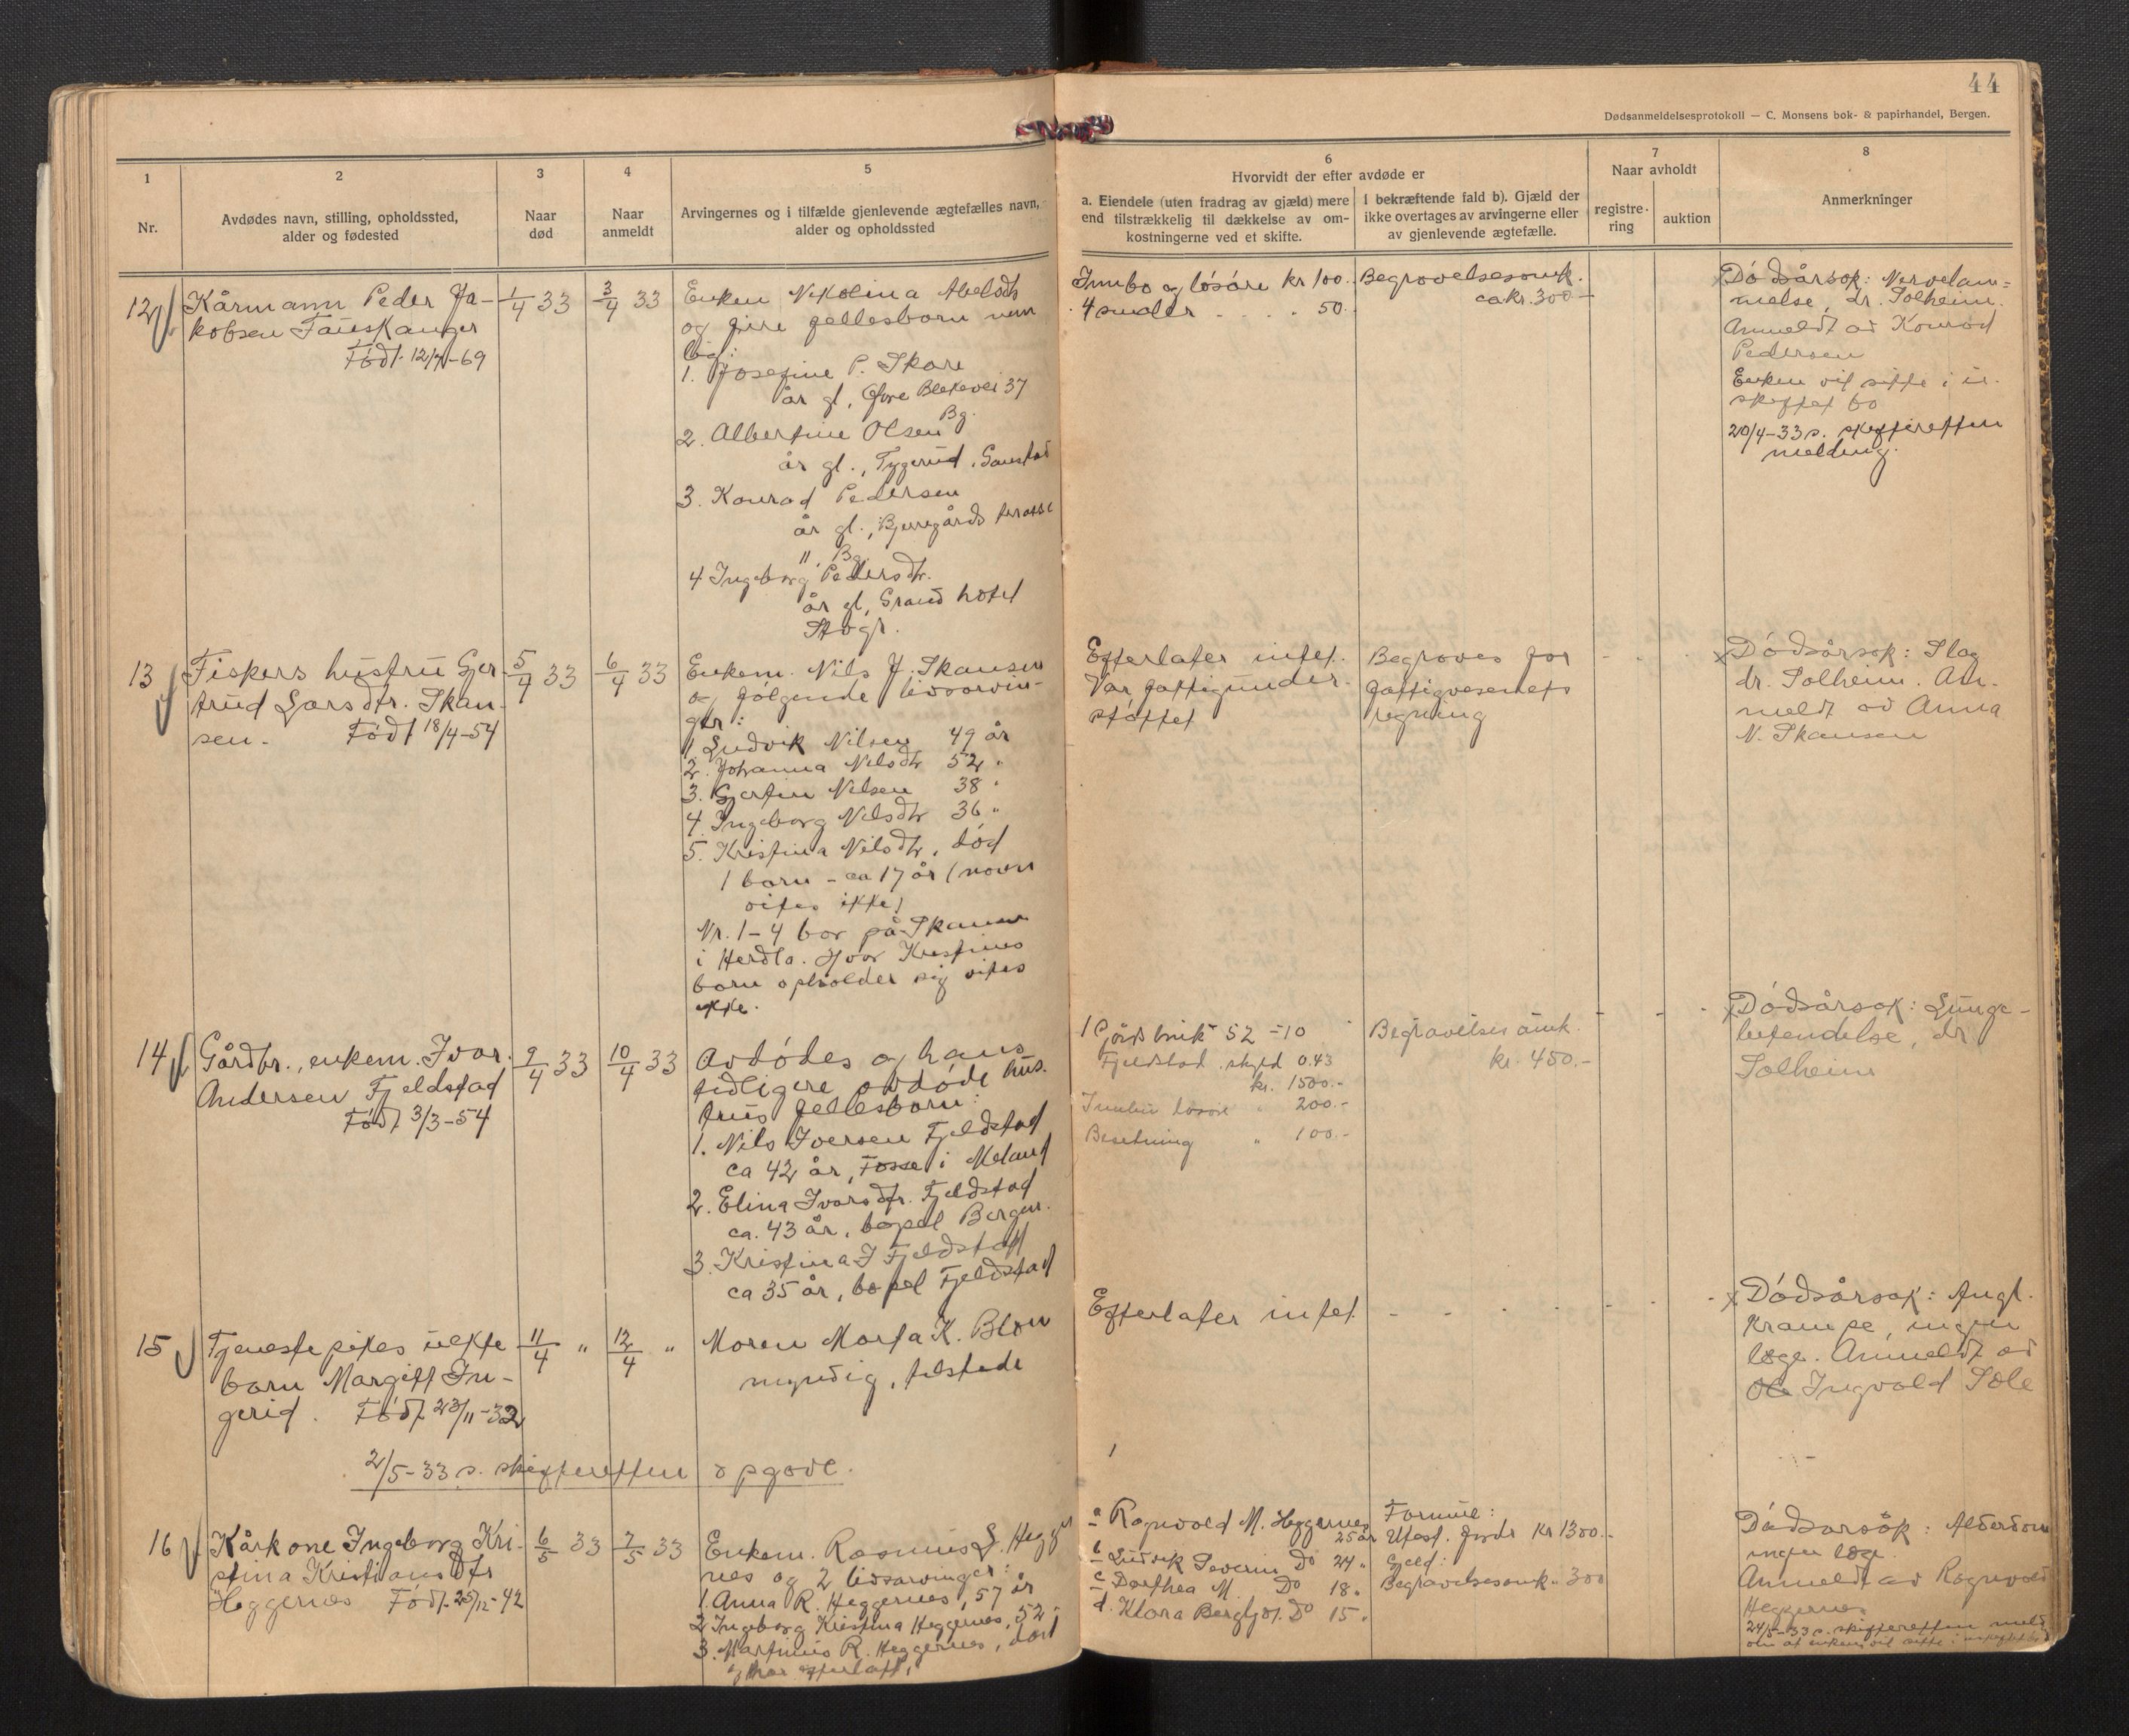 44
Dødsanmeldelsesprotokoll — C. Monsens bok- & papirhandel, Bergen.
1
Nr.
2
Avdødes navn, stilling, opholdssted,
alder og fødested
3
Naar
død
4
Naar
anmeldt
5
Arvingernes og i tilfælde gjenlevende ægtefælles navn,
alder og opholdssted
6
Hvorvidt der efter avdøde er
a. Eiendele (uten fradrag av gjæld) mere
end tilstrækkelig til dækkelse av om-
kostningerne ved et skifte.
I bekræftende fald b). Gjæld der
ikke overtages av arvingerne eller
av gjenlevende ægtefælle.
7
Naar avholdt
registre-
ring
auktion
8
Anmerkninger
12
Kårmann Peder Ja-
kobsen Fauskanger
Født 12/7-69
1/4 33
3/4 33
Enken Nikolina Abelsdtr
og fire fellesbarn nem
lig:
1. Josefine P. Skare
år gl, Øvre Blekevei 37
Bg.
2. Albertine Olsen
år gl.,
3. Konrad Pedersen
år gl., Bjerregårds terasse
" Bg
4 Ingeborg Pedersdtr.
år gl, Grand hotel
Innbo og løsøre kr 100.
4 smaler . . . . 50.
Begravelsesomk.
ca kr. 300.—
Dødsårsak: Nervelam=
melse, dr. Solheim.
Anmeldt av Konrad
Pedersen
Enken vil sitte i u-
skiftet bo
20/4-33 s. skifteretten
melding.
13
Fiskers hustru Ger-
trud Larsdtr. Skan-
sen. Født 18/4-54
5/4 33
6/4 33
Enkem. Nils J. Skansen
og følgende livsarvin-
ger:
1 Ludvik Nilsen 49 år
2. Johanna Nilsdtr 52 "
3. Gjertin Nilsen 38 "
4. Ingeborg Nilsdtr 36 "
5. Kristina Nilsdtr, død
1 barn - ca 17 år (navn
vites ikke)
Nr. 1-4 bor på Skansen
i Herdla. Hvor Kristines
barn opholder sig vites
ikke.
Efterlater intet.
Var fattigunder-
støttet
Begraves for
fattigvesenets
regning
Dødsårsak: Slag
dr. Solheim. An-
meldt av Anna
N. Skansen
14
Gårdbr., enkem. Ivar
Andersen Fjeldstad
Født 3/3-54
9/4 33
10/4 33
Avdødes og hans
tidligere avdøde hus-
trus fellesbarn:
1. Nils Iversen Fjeldstad
ca 42 år, Fosse i Meland
2. Elina Ivarsdtr. Fjeldstad
ca. 43 år, bopel Bergen.
3. Kristina I Fjeldstad
ca 35 år, bopel Fjeldstad
1 Gårdsbruk 52 - 10
Fjeldstad, skyld 0.43
kr. 1500.-
Innbu løsøre " 200.-
Besetning " 100.-
Begravelses omk.
kr. 450.-
Dødsårsak: Lunge-
betendelse, dr
Solheim
15
Tjenestepikes uekte
barn Margitt In-
gerid. Født 23/11-32
11/4 "
12/4 "
Moren Marta K. Blom
myndig, tilstede
Efterlater intet
Dødsårsak:
Krampe, ingen
læge. Anmeldt av
Ole Ingvald Sæle
2/5-33 s. skifteretten opgave.
16
Kårkone Ingeborg Kri-
stina Kristiansdtr
Heggernes Født 25/12-42
6/5 33
7/5 33
Enkem. Rasmus L. Hegger
nes og 2 livsarvinger:
1. Anna R. Heggernes, 57 år
2 Ingeborg Kristina Heggernes, 52 -
3. Martinus R. Heggernes, død
og har efterlatt,
a Ragnvald M. Heggernes 25 år
b Ludvik Severin Do 24 "
c Dorthea M. Do 18 "
d. Klara Bergljot. Do 15 "
Formue:
Utest. fordr kr 1300.-
Gjeld:
Begravelsesomk. 300
Dødsårsak: Alderdom
ingen læge.
Anmeldt av Ragnvald
Heggernes
24/5-33 s. skifteretten meld.
om at enkem. vil sitte i uskiftet bo